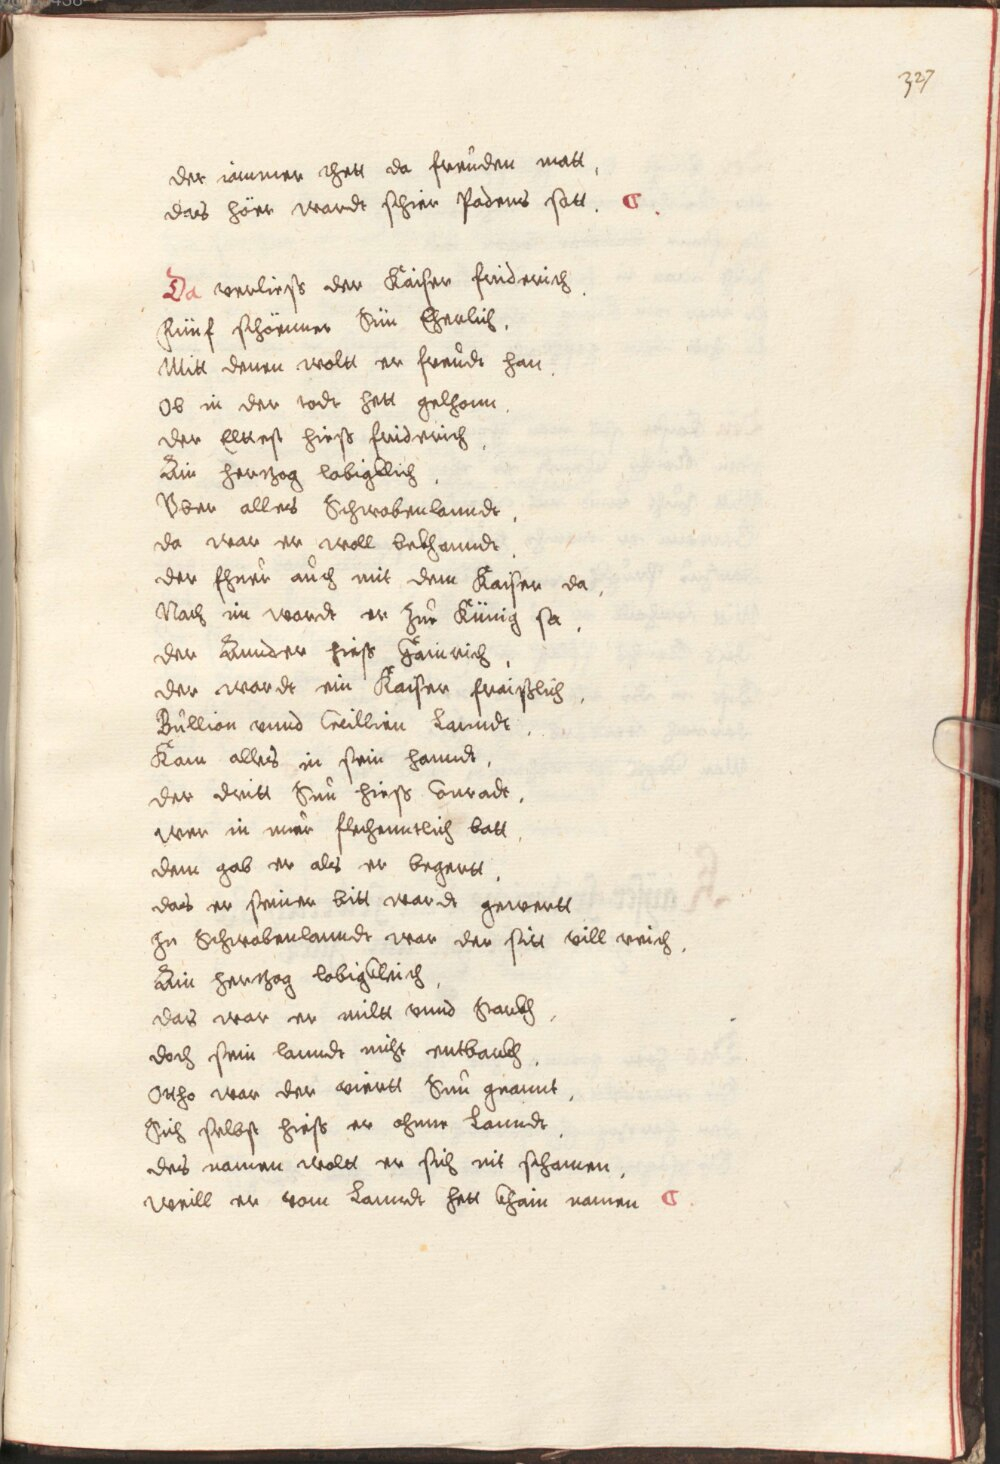 327
der iammer thett da freuden matt,
das hörr wardt schier Padens satt.
Da verließ der Kaiser friderich.
Fünf schönner Sün Eherlich,
Mitt denen wollt er freudt han.
Ob in der todt hett gelhonn.
der Elltest hieß friderich,
Ain hertzog lobigklich,
Vber alles Schwabenlanndt,
da war er woll bekhanndt.
der fhuer auch mit dem Kaiser da,
Nach im wardt er zue Künig sa,
der Annder hieß Hainrich,
der wardt ein Kaiser fraißlich,
Bullion vnnd Cecillien Lanndt,
Kam alles in sein hanndt,
der dritt Sun hieß Conradt,
wer in nuer flechenntlich batt,
dem gab er als er begertt,
das er seiner bitt wardt gewertt
Zu Schwabenlanndt war der sitt vill reich,
Ain hertzog lobigkleich,
das war er milt vnnd Starckh,
doch sein lanndt nicht entbarckh,
Ottho war der viertt Sun genant,
Sich selbst hieß er ohnne Lanndt,
des namen wollt er sich nit schamen,
weill er vom Lanndt hett khain namen